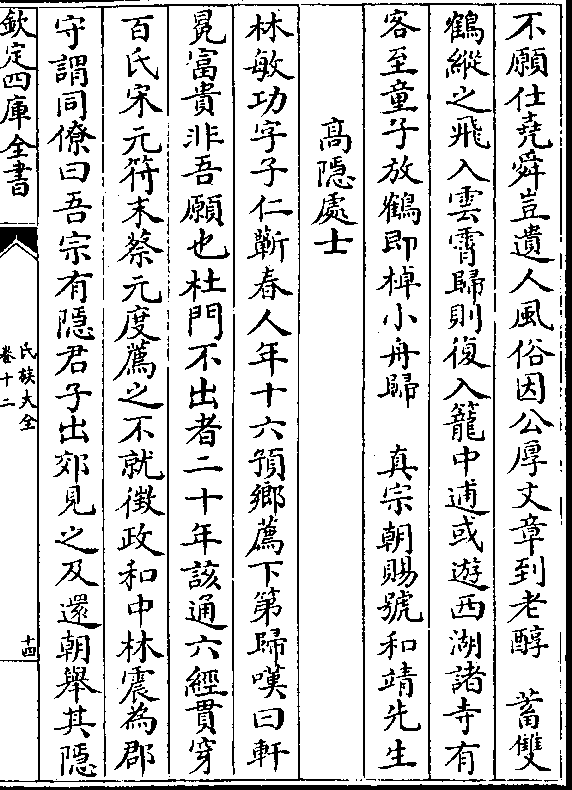 不願仕堯舜豈遺人風俗因公厚文章到老醇　蓄雙
鶴縱之飛入雲霄歸則復入籠中逋或遊西湖諸寺有
客至童子放鶴即棹小舟歸　真宗朝賜號和靖先生
高隱處士
林敏功字子仁蘄春人年十六預鄉薦下第歸嘆曰軒
冕富貴非吾願也杜門不出者二十年該通六經貫穿
百氏宋元符末蔡元度薦之不就徴政和中林震為郡
守謂同僚曰吾宗有隱君子出郊見之及還朝舉其隱
欽定四庫全書
氏族大全
卷十二
十四